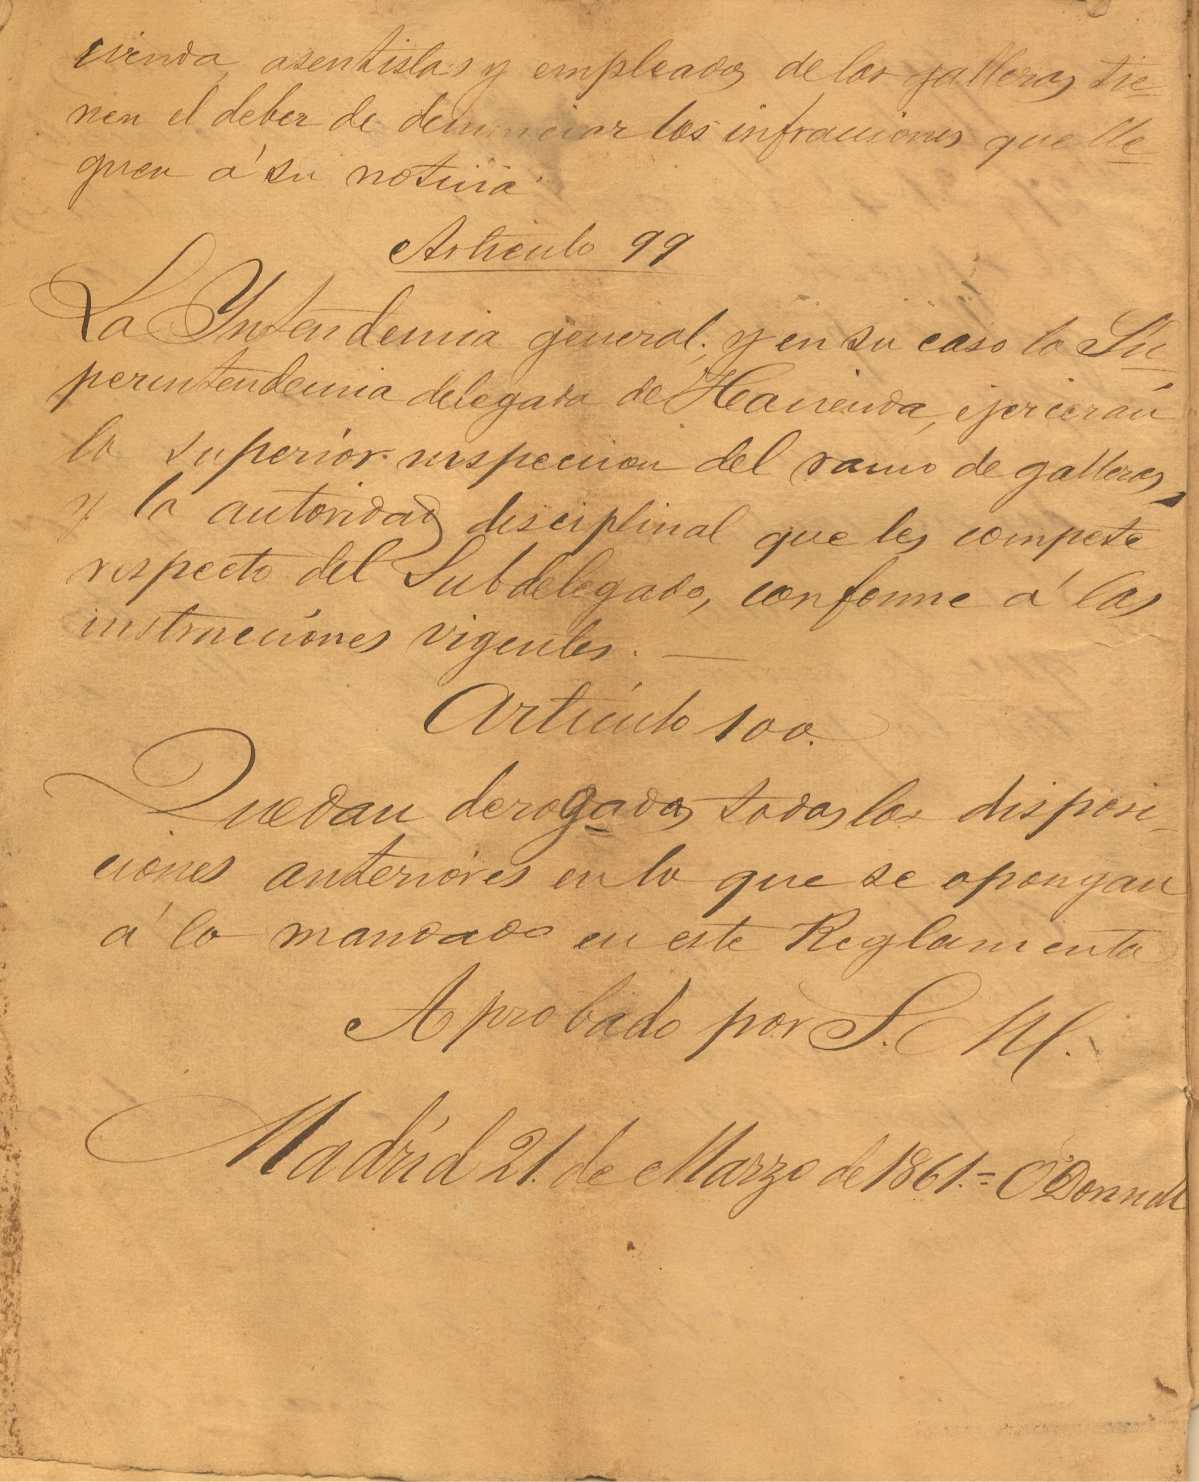 cienda, asentistas y empleados de las galleras tie-
nen el deber de denunciar las infracciones que lle-
guen á su noticia
Artículo 99
La Yntendencia general, y en su caso la Su-
perintendencia delegada de Hacienda, ejercerán
la superior inspeccion del ramo de galleras,
y la autoridad disciplinal que les compete
respecto del Subdelegado, conforme á las
instrucciónes vigentes. —
Artículo 100.
Quedan derogadas todas las disposi-
ciones anterióres en lo que se opongan
á lo mandado en este Reglamento
Aprobado por S. M.
Madrid 21. de Marzo de 1861.= O'Donnell